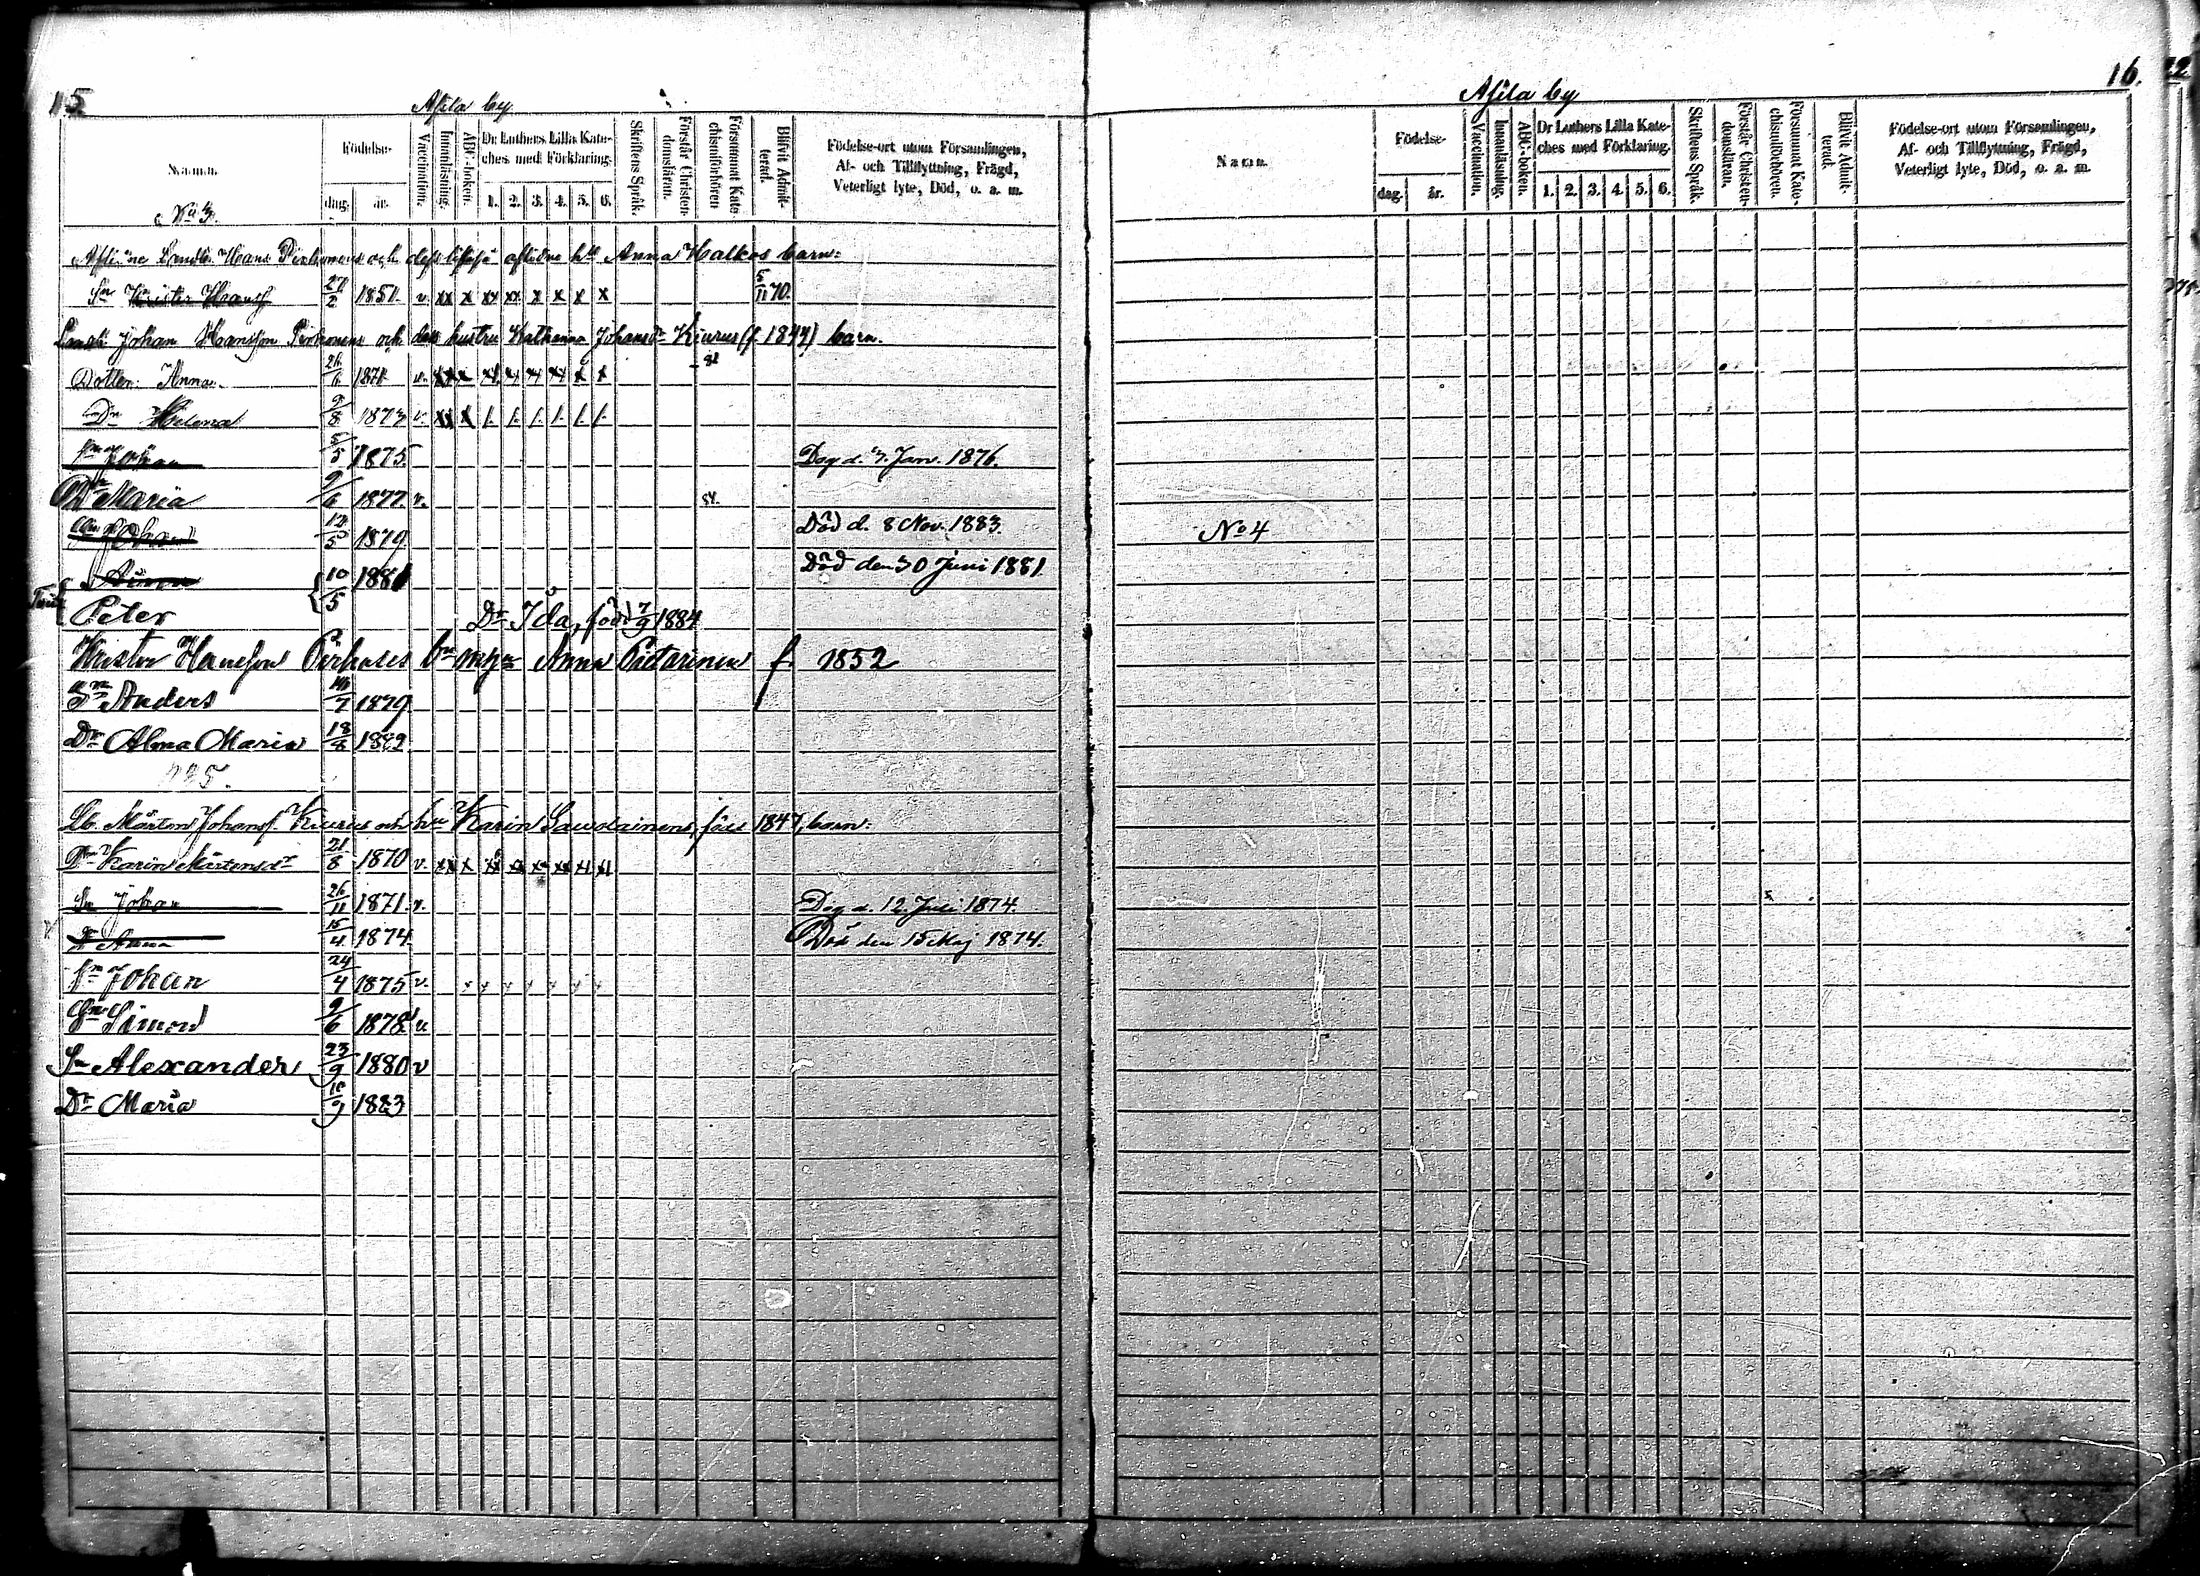 15.
Asila by
Namn.
Födelse-
dag.
år.
Vaccination.
Innanläsning.
ABC-boken.
Dr Luthers Lilla Kate-
ches med Förklaring.
1. 2. 3. 4. 5. 6.
Skriftens Språk.
Förstår Christen-
domsläran.
Försummat Kate-
chismiförhören
Blifvit Admit-
terad.
Födelse-ort utom Församlingen,
Af- och Tillflyttning, Frägd,
Veterligt lyte, Död, o. a. m.
No 3.
Hans Pirhonens och aflidne Anna Halkos barn:
Sn Krister Hansf 27/2 1851. v. xx x xx xx x x x x 5/11 70.
Johan Hansson Pirhonens och dess hustru Katharina Johansdr Kiurus (f. 1847) barn.
Dotter: Anna 26/6 1871 v. 82
Dr Helena 9/8 1873 v. 1. 1. 1. 1. 1. 1.
Sn Johan 5/5 1875. Dog d. 3. Jan. 1876.
Dr Maria 9/6 1877. v. 84.
Sn Johan 12/5 1879 Död d. 8 Nov. 1883.
10/5 1881 Död den 30 Juni 1881.
Peter Dr Ida, född 7/9 1884
Krister Hansson Pirhonens Anna f. 1852
Sn Anders 16/7 1879
Dr Alma Maria 18/8 1882
Lb. Mårten Johansf. Kiurus och hu Karin född 1847, barn:
Dr Karin Mårtensdr 21/8 1870 v.
Sn Johan 26/11 1871. v. Dog d. 12. Juli 1874.
Dr Anna 15/4 1874 Död den 15 Maj 1874.
Sn Johan 24/4 1875 v.
Sn Simon 9/6 1878 v
Sn Alexander 23/9 1880 v
Dr Maria 10/9 1883
16.
Asila by
Namn.
Födelse-
dag.
år.
Vaccination.
Innanläsning.
ABC-boken.
Dr Luthers Lilla Kate-
ches med Förklaring.
1. 2. 3. 4. 5. 6.
Skriftens Språk.
Förstår Christen-
domsläran.
Försummat Kate-
chismiförhören.
Blifvit Admit-
terad.
Födelse-ort utom Församlingen,
Af- och Tillflyttning, Frägd,
Veterligt lyte, Död, o. a. m.
No 4